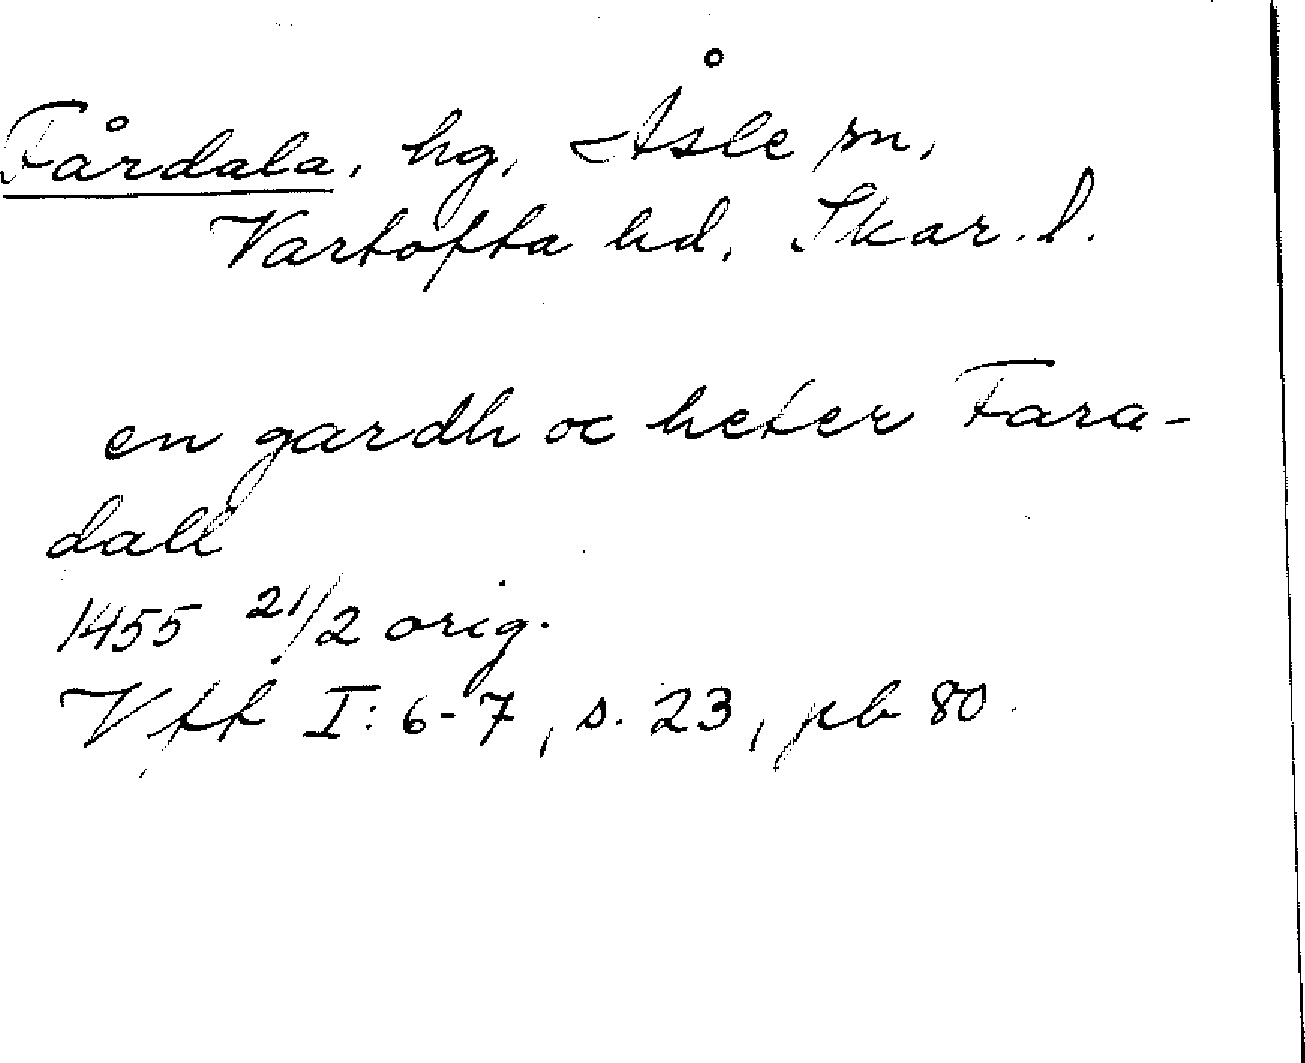 Fårdala, hg, Åsle sn,
Vartofta hd, Skar. l.
en gardh oc heter Fara-
dall
1455 21/2 orig.
Vff I: 6-7, s. 23, pb 80.